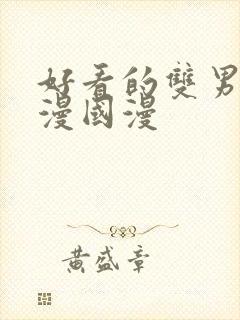 好看的雙男
漫國漫
黃盛章